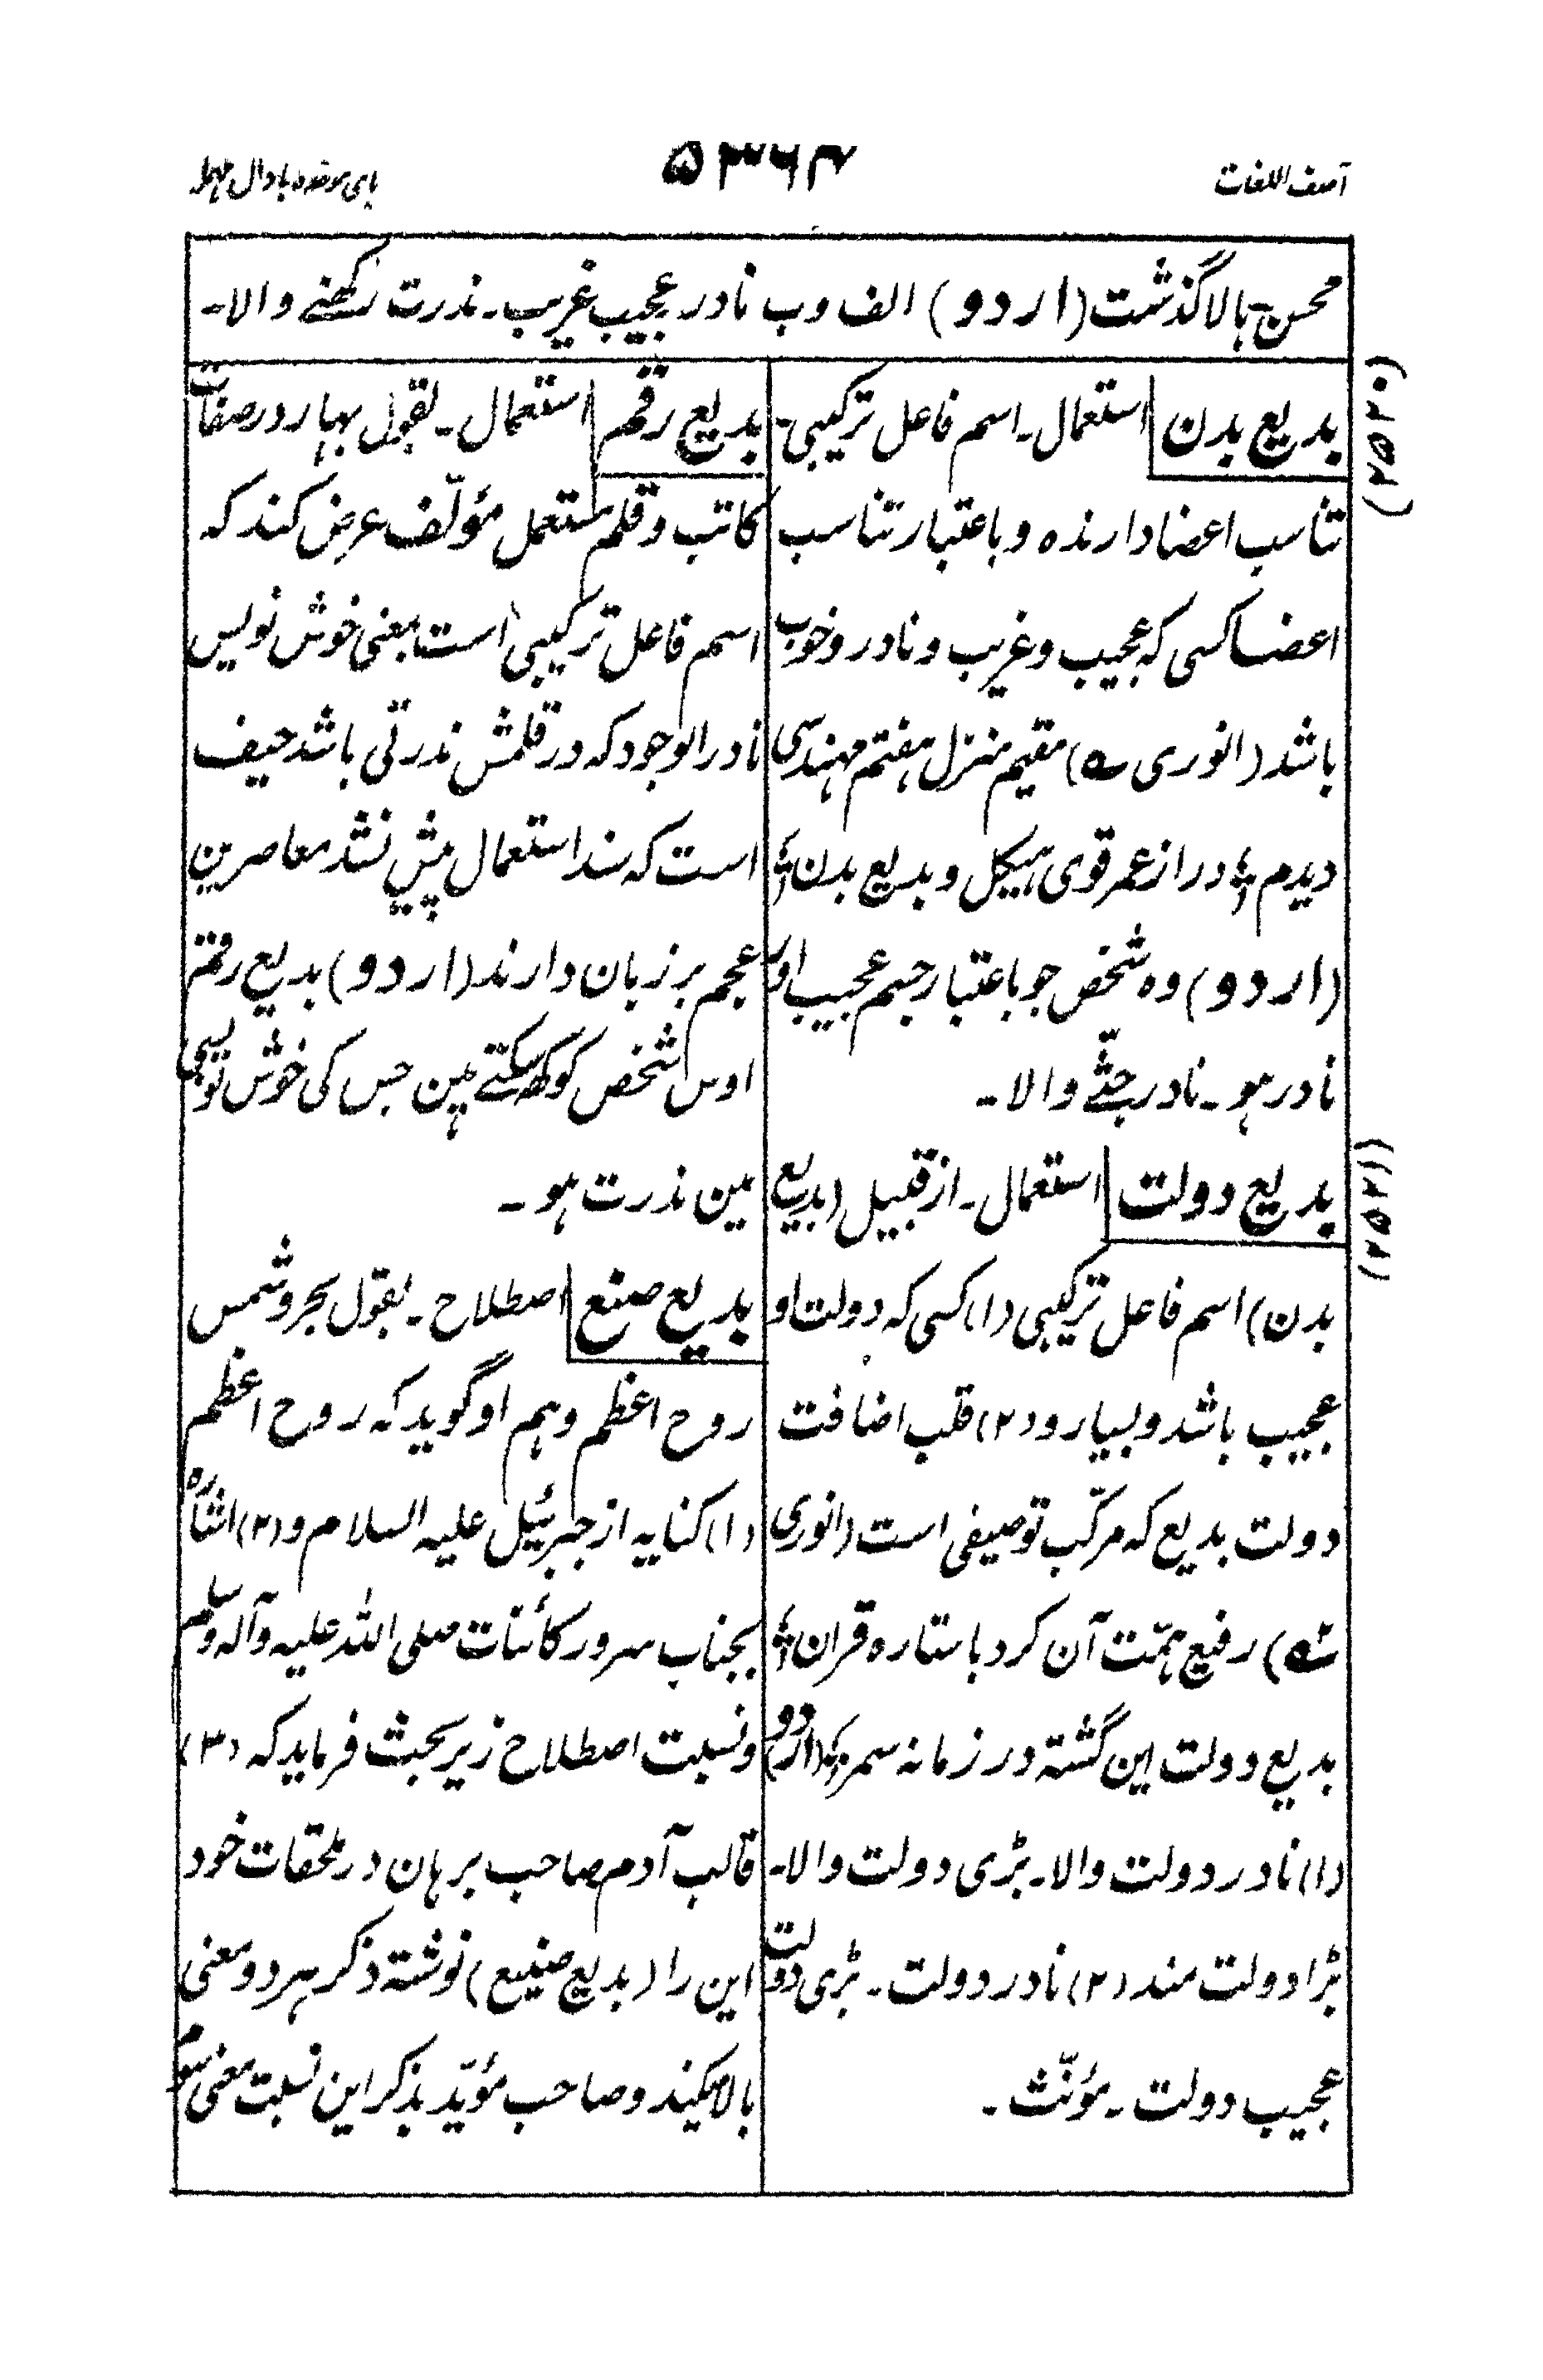 آصف اللغات
۵۳۶۴
بای موحدہ با دال مہملہ
محسن۔ بالا گذشت (اردو) الف و ب نادر عجیب غریب۔ ندرت رکھنے والا۔
(۲۵۲۰)
بدیع بدن استعمال۔ اسم فاعل ترکیبی۔
تناسب اعضا دارندہ و باعتبار تناسب
اعضا کسی کہ عجیب و غریب و نادر و خوب
باشد (انوری ؎) مقیم منزل ہفتم مہندسی
دیدم ؛ دراز عمر قوی ہیکل و بدیع بدن ؛
(اردو) وہ شخص جو باعتبار جسم عجیب اور
نادر ہو۔ نادر جثّے والا۔
(۲۵۲۱)
بدیع دولت استعمال۔ از قبیل (بدیع
بدن) اسم فاعل ترکیبی (۱) کسی کہ دولت او
عجیب باشد و بسیار و (۲) قلب اضافت
دولت بدیع کہ مرکّب توصیفی است (انوری
؎) رفیع ہمّت آن کرد با ستارہ قران ؛
بدیع دولت این گشتہ در زمانہ سمر ؛ (اردو)
(۱) نادر دولت والا۔ بڑی دولت والا۔
بڑا دولت مند (۲) نادر دولت۔ بڑی دولت
عجیب دولت۔ مؤنّث۔
بدیع رقم استعمال۔ بقول بہار در صفات
کاتب و قلم مستعمل مؤلّف عرض کند کہ
اسم فاعل ترکیبی است بمعنی خوش نویس
نادر الوجود کہ در قلمش ندرتی باشد حیف
است کہ سند استعمال پیش نشد معاصرین
عجم بر زبان دارند (اردو) بدیع رقم
اوس شخص کو کہہ سکتے ہین جس کی خوش نویسی
مین ندرت ہو۔
بدیع صنع اصطلاح۔ بقول بحر و شمس
روح اعظم و ہم او گوید کہ روح اعظم
(۱) کنایہ از جبرئیل علیہ السلام و (۲) اشارہ
بجناب سرور کائنات صلی اللہ علیہ وآلہ وسلم
و نسبت اصطلاح زیر بحث فرماید کہ (۳)
قالب آدم صاحب برہان در ملحقات خود
این را (بدیع صنیع) نوشتہ ذکر ہر دو معنی
بالا میکند و صاحب مؤیّد بذکر این نسبت معنی سوم